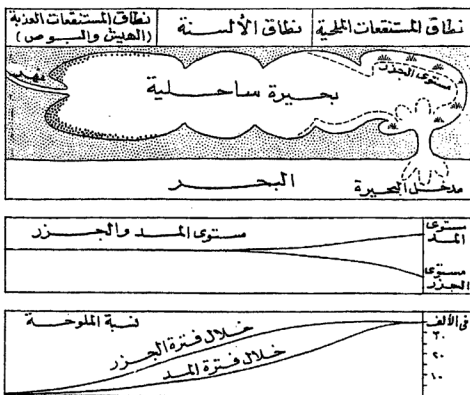 نطاق المستنقعات الملحية
نطاق الألسنة
نطاق المستنقعات العذبة
(الهيش والبوص)
مستوى الجزر
نهر
بحيرة ساحلية
البحر
مدخل البحيرة
مستوى المد والجزر
مستوى
المد
مستوى
الجزر
نسبة الملوحة
خلال فترة الجزر
خلال فترة المد
فى الألف
٣٠
٢٠
١٠